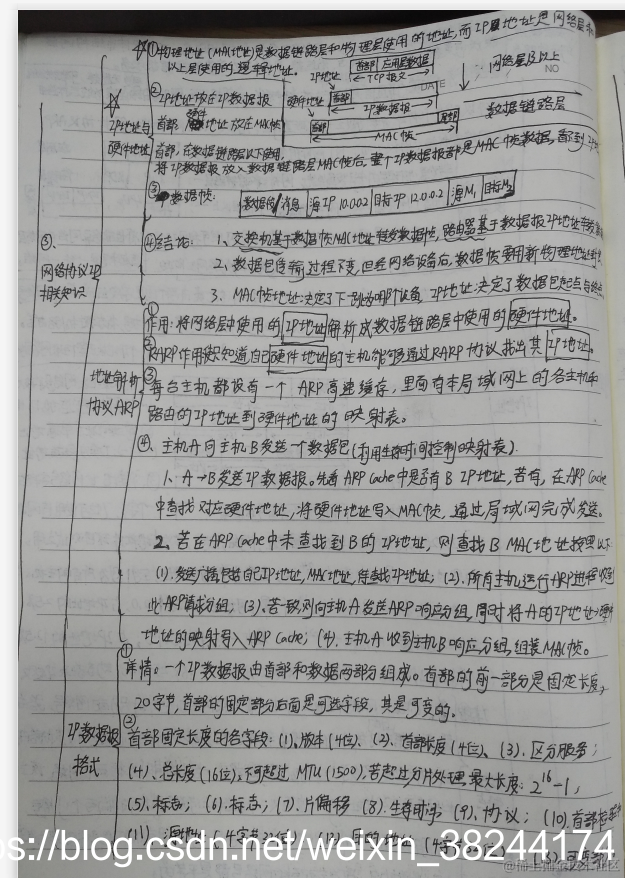 ①物理地址(MAC地址)是数据链路层和物理层使用的地址,而IP地址是网络层和
以上层使用的逻辑地址。
首部 应用层数据
网络层及以上
IP地址
TCP报文
DATE
NO
②IP地址放在IP数据报
硬件地址
首部
IP数据报
首部,硬件地址放在MAC帧
数据链路层
首部
MAC帧
IP地址与
硬件地址
首部,在数据链路层以下使用。
将IP数据报放入数据链路层MAC帧后,整个IP数据报都是MAC帧数据,
③数据帧:
消息 源IP 10.0.0.2 目标IP 12.0.0.2 源M1 目标M2
④结论:1、交换机基于数据帧MAC地址转发数据帧,路由器基于数据报IP地址转发
2、数据包传输过程不变,但经网络设备后,数据帧要用新物理地址
3、MAC帧地址:决定了下一跳哪个设备,IP地址:决定了数据包起点与终点
③、
网络协议IP
相关知识
①
作用:将网络层中使用的IP地址解析成数据链路层中使用的硬件地址。
②
RARP作用:使知道自己硬件地址的主机能够通过RARP协议找出其IP地址。
地址解析
协议ARP
③
每台主机都设有一个ARP高速缓存,里面有本局域网上的各主机和
路由的IP地址到硬件地址的映射表。
④、主机A向主机B发送一个数据包(利用生存时间控制映射表).
1、A→B发送IP数据报。先看ARP Cache中是否有B IP地址,若有,在ARP Cache
中查找对应硬件地址,将硬件地址写入MAC帧,通过局域网完成发送。
2、若在ARP Cache中未查找到B的IP地址,则查找B MAC地址按照以下
(1).发送广播包括自己IP地址,MAC地址,待查找IP地址;(2).所有主机运行ARP进程收到
此ARP请求分组;(3).若一致则向主机A发送ARP响应分组,同时将A的IP地址→硬件
地址的映射写入ARP Cache;(4).主机A收到主机B响应分组,组装MAC帧。
①
详情。一个IP数据报由首部和数据两部分组成。首部的前一部分是固定长度,
20字节,首部的固定部分后面是可选字段,其是可变的。
IP数据报
格式
②
首部固定长度的各字段:(1)、版本(4位)、(2)、首部长度(4位)、(3)、区分服务;
(4)、总长度(16位),不可超过MTU(1500),若超过分片处理,最大长度:2^16-1;
(5)、标志;(6).标志;(7)、片偏移 (8).生存时间 (9)、协议;(10).首部检验和
(11) 源地址(4字节32位)
s://blog.csdn.net/weixin_38244174
@稀土掘金技术社区